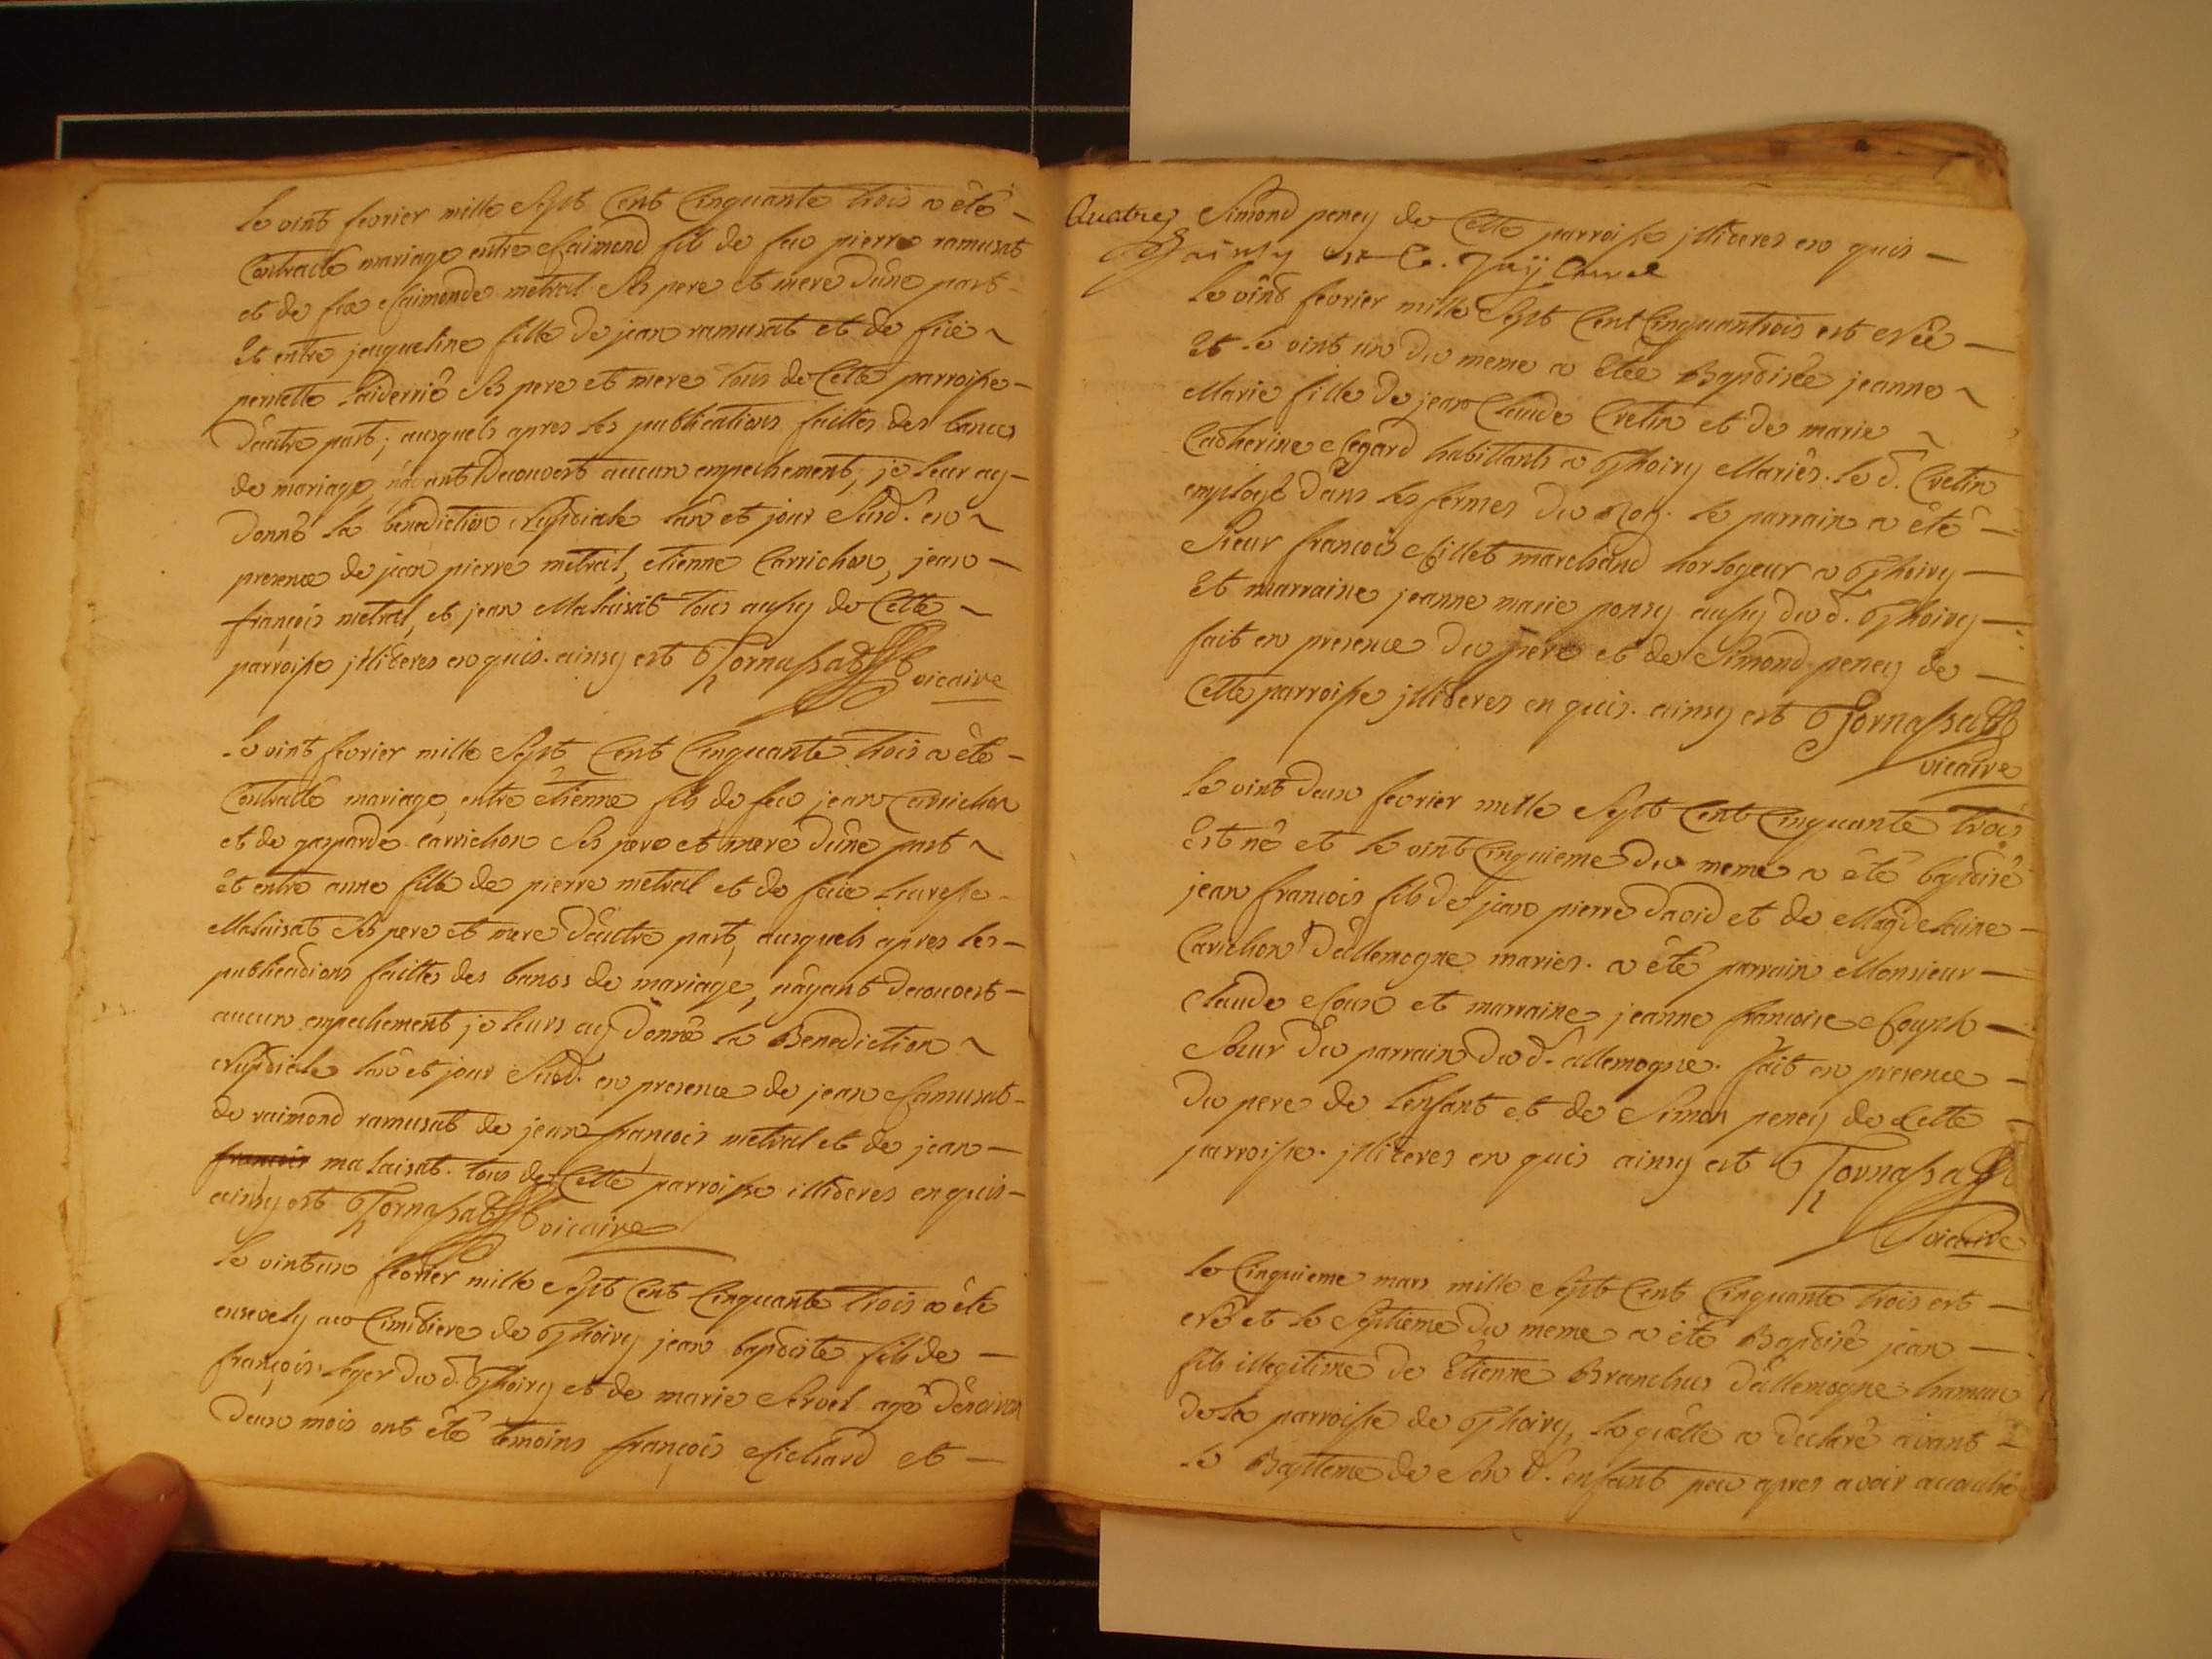 le vint fevrier mille Sept Cent Cinquante trois a été
Contracté mariage entre Raimond fils de feu pierre ramusat
et de feu Raimonde metral Ses pere et mere d'une part
Et entre jaqueline fille de jean ramusat et de feüe
pernette Laiderrié Ses pere et mere tous de Cette parroisse
d'autre part; ausquels apres les publications faittes des bancs
de mariage, n'ayant Decouvert aucun empechement, je leur ay
Donné la benediction Nuptiale l'an et jour Susd. en
presence de jean pierre metral, etienne Carrichon, jean
françois metral, et jean Malaisat tous aussy de Cette
parroisse jlliteres enquis. ainsy est Tornassat vicaire
le vint fevrier mille Sept Cent Cinquante trois a été
Contracté mariage entre étienne fils de feu jean Carrichon
et de gasparde Carrichon Ses pere et mere d'une part
et entre anne fille de pierre metral et de feüe
Malaisat Ses pere et mere d'autre part, ausquels apres les
publications faittes des bancs de mariage, n'ayant decouvert
aucun empechement, je leurs ay Donné la Benediction
Nuptiale l'an et jour Susd. en presence de jean Ramusat
de raimond ramusat de jean françois metral et de jean
françois malaisat. tous de Cette parroisse illiteres enquis
ainsy est Tornassat vicaire
le vintun fevrier mille Sept Cent Cinquante trois a été
ensevely au Cimitiere de Thoiry jean baptiste fils de
françois Leger du d. Thoiry et de marie Servel agé d'environ
deux mois ont été temoins françois Richard et
Quatre Simond peney de Cette parroisse jlliteres en quis
ainsy est Curé
le vint fevrier mille Sept Cent Cinquantrois est Née
Et le vint un du meme a Etée Baptisée jeanne
Marie fille de jean Claude Cretin et de marie
Catherine Regard habittants a Thoiry Mariés. le d. Cretin
employé dans les fermes du Roy. le parrain a été
Sieur françois Rillet marchand horlogeur a Thoiry
Et marraine jeanne marie ponsy aussy du d. Thoiry
fait en presence du pere et de Simond peney de
Cette parroisse jlliteres enquis. ainsy est Tornassat
vicaire
le vint deux fevrier mille Sept Cent Cinquante trois
Est né et le vint Cinquieme du meme a été baptisé
jean françois fils de jean pierre David et de Magdelaine
Carichon d'allemogne mariés. a été parrain Monsieur
Claude Roux et marraine jeanne françoise Rouph
Sœur du parrain du d. allemogne. fait en presence
du pere de l'enfant et de Simon peney de Cette
parroisse. jlliteres en quis ainsy est Tornassat
vicaire
le Cinquieme mars mille Sept Cent Cinquante trois est
Né et le Septieme du meme a été Baptisé jean
fils illegitime de Etienne Branchus d'allemogne hameau
de la parroisse de Thoiry, laquelle a declaré avant
le Bapteme de Son d. enfant peu apres avoir accouché